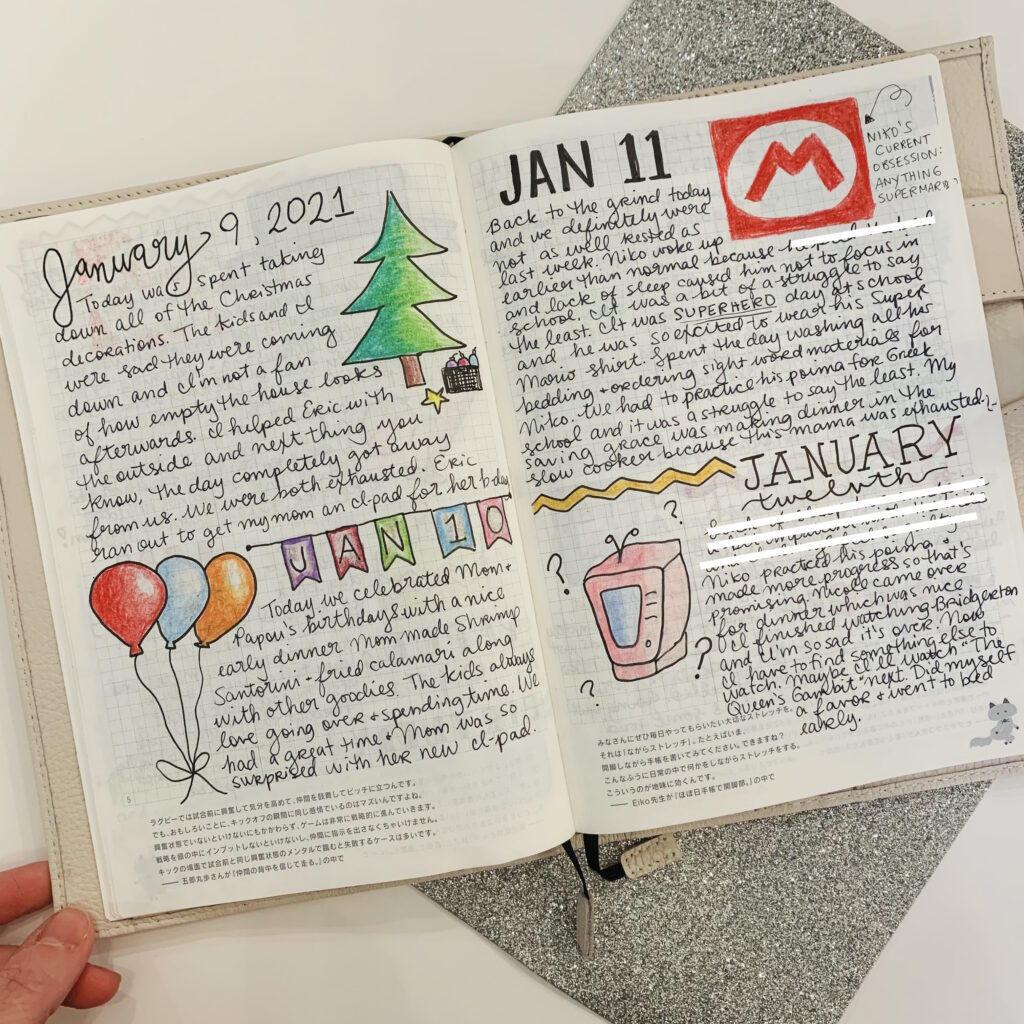 January 9, 2021
Today was spent taking
down all of the Christmas
decorations. The kids and I
were sad they were coming
down and I'm not a fan
of how empty the house looks
afterwards. I helped Eric with
the outside and next thing you
know, the day completely got away
from us. We were both exhausted. Eric
ran out to get my mom an I-pad for her b-day
JAN 10
Today we celebrated Mom +
Papou's birthdays with a nice
early dinner. Mom made Shrimp
Santorini + fried calamari along
with other goodies. The kids always
love going over + spending time. We
had a great time + Mom was so
surprised with her new I-pad.
5
ラグビーでは試合前に興奮して気分を高めて、仲間を鼓舞してピッチに立つんです。
でも、おもしろいことに、キックオフの瞬間に同じ感情でいるのはマズいんですよね。
興奮状態でいないといけないにもかかわらず、ゲームは非常に戦略的に進んでいきます。
戦略を頭の中にインプットしないといけないし、仲間に指示を出さなくちゃいけません。
キックの場面で試合前と同じ興奮状態のメンタルで臨むと失敗するケースは多いです。
—— 五郎丸歩さんが『仲間の背中を信じて走る。』の中で
JAN 11
M
NIKO'S
CURRENT
OBSESSION:
ANYTHING
SUPERMARIO
Back to the grind today
and we definitely were
not as well rested as
last week. Niko woke up
earlier than normal because
and lack of sleep caused him not to focus in
school. It was a bit of a struggle to say
the least. It was SUPERHERO day at school
and he was so excited to wear his Super
Mario shirt. Spent the day washing all his
bedding + ordering sight word materials for
Niko. We had to practice his poima for Greek
school and it was a struggle to say the least. My
saving grace was making dinner in the
slow cooker because this mama was exhausted
JANUARY
twelvth
Niko practiced his poima +
made more progress so that's
promising. Nicole came over
for dinner which was nice.
I finished watching Bridgerton
and I'm so sad it's over. Now
I have to find something else to
watch. Maybe I'll watch "The
Queen's Gambit" next. Did myself
a favor + went to bed
early.
? ? ? ?
みなさんにぜひ毎日やってもらいたい大切なストレッチを。
それは『ながらストレッチ』。たとえばいま、
開脚しながら手帳を書いてみてください。できますね?
こんなふうに日常の中で何かをしながらストレッチをする。
こういうのが地味に効くんです。
—— Eiko先生が『ほぼ日手帳で開脚部。』の中で